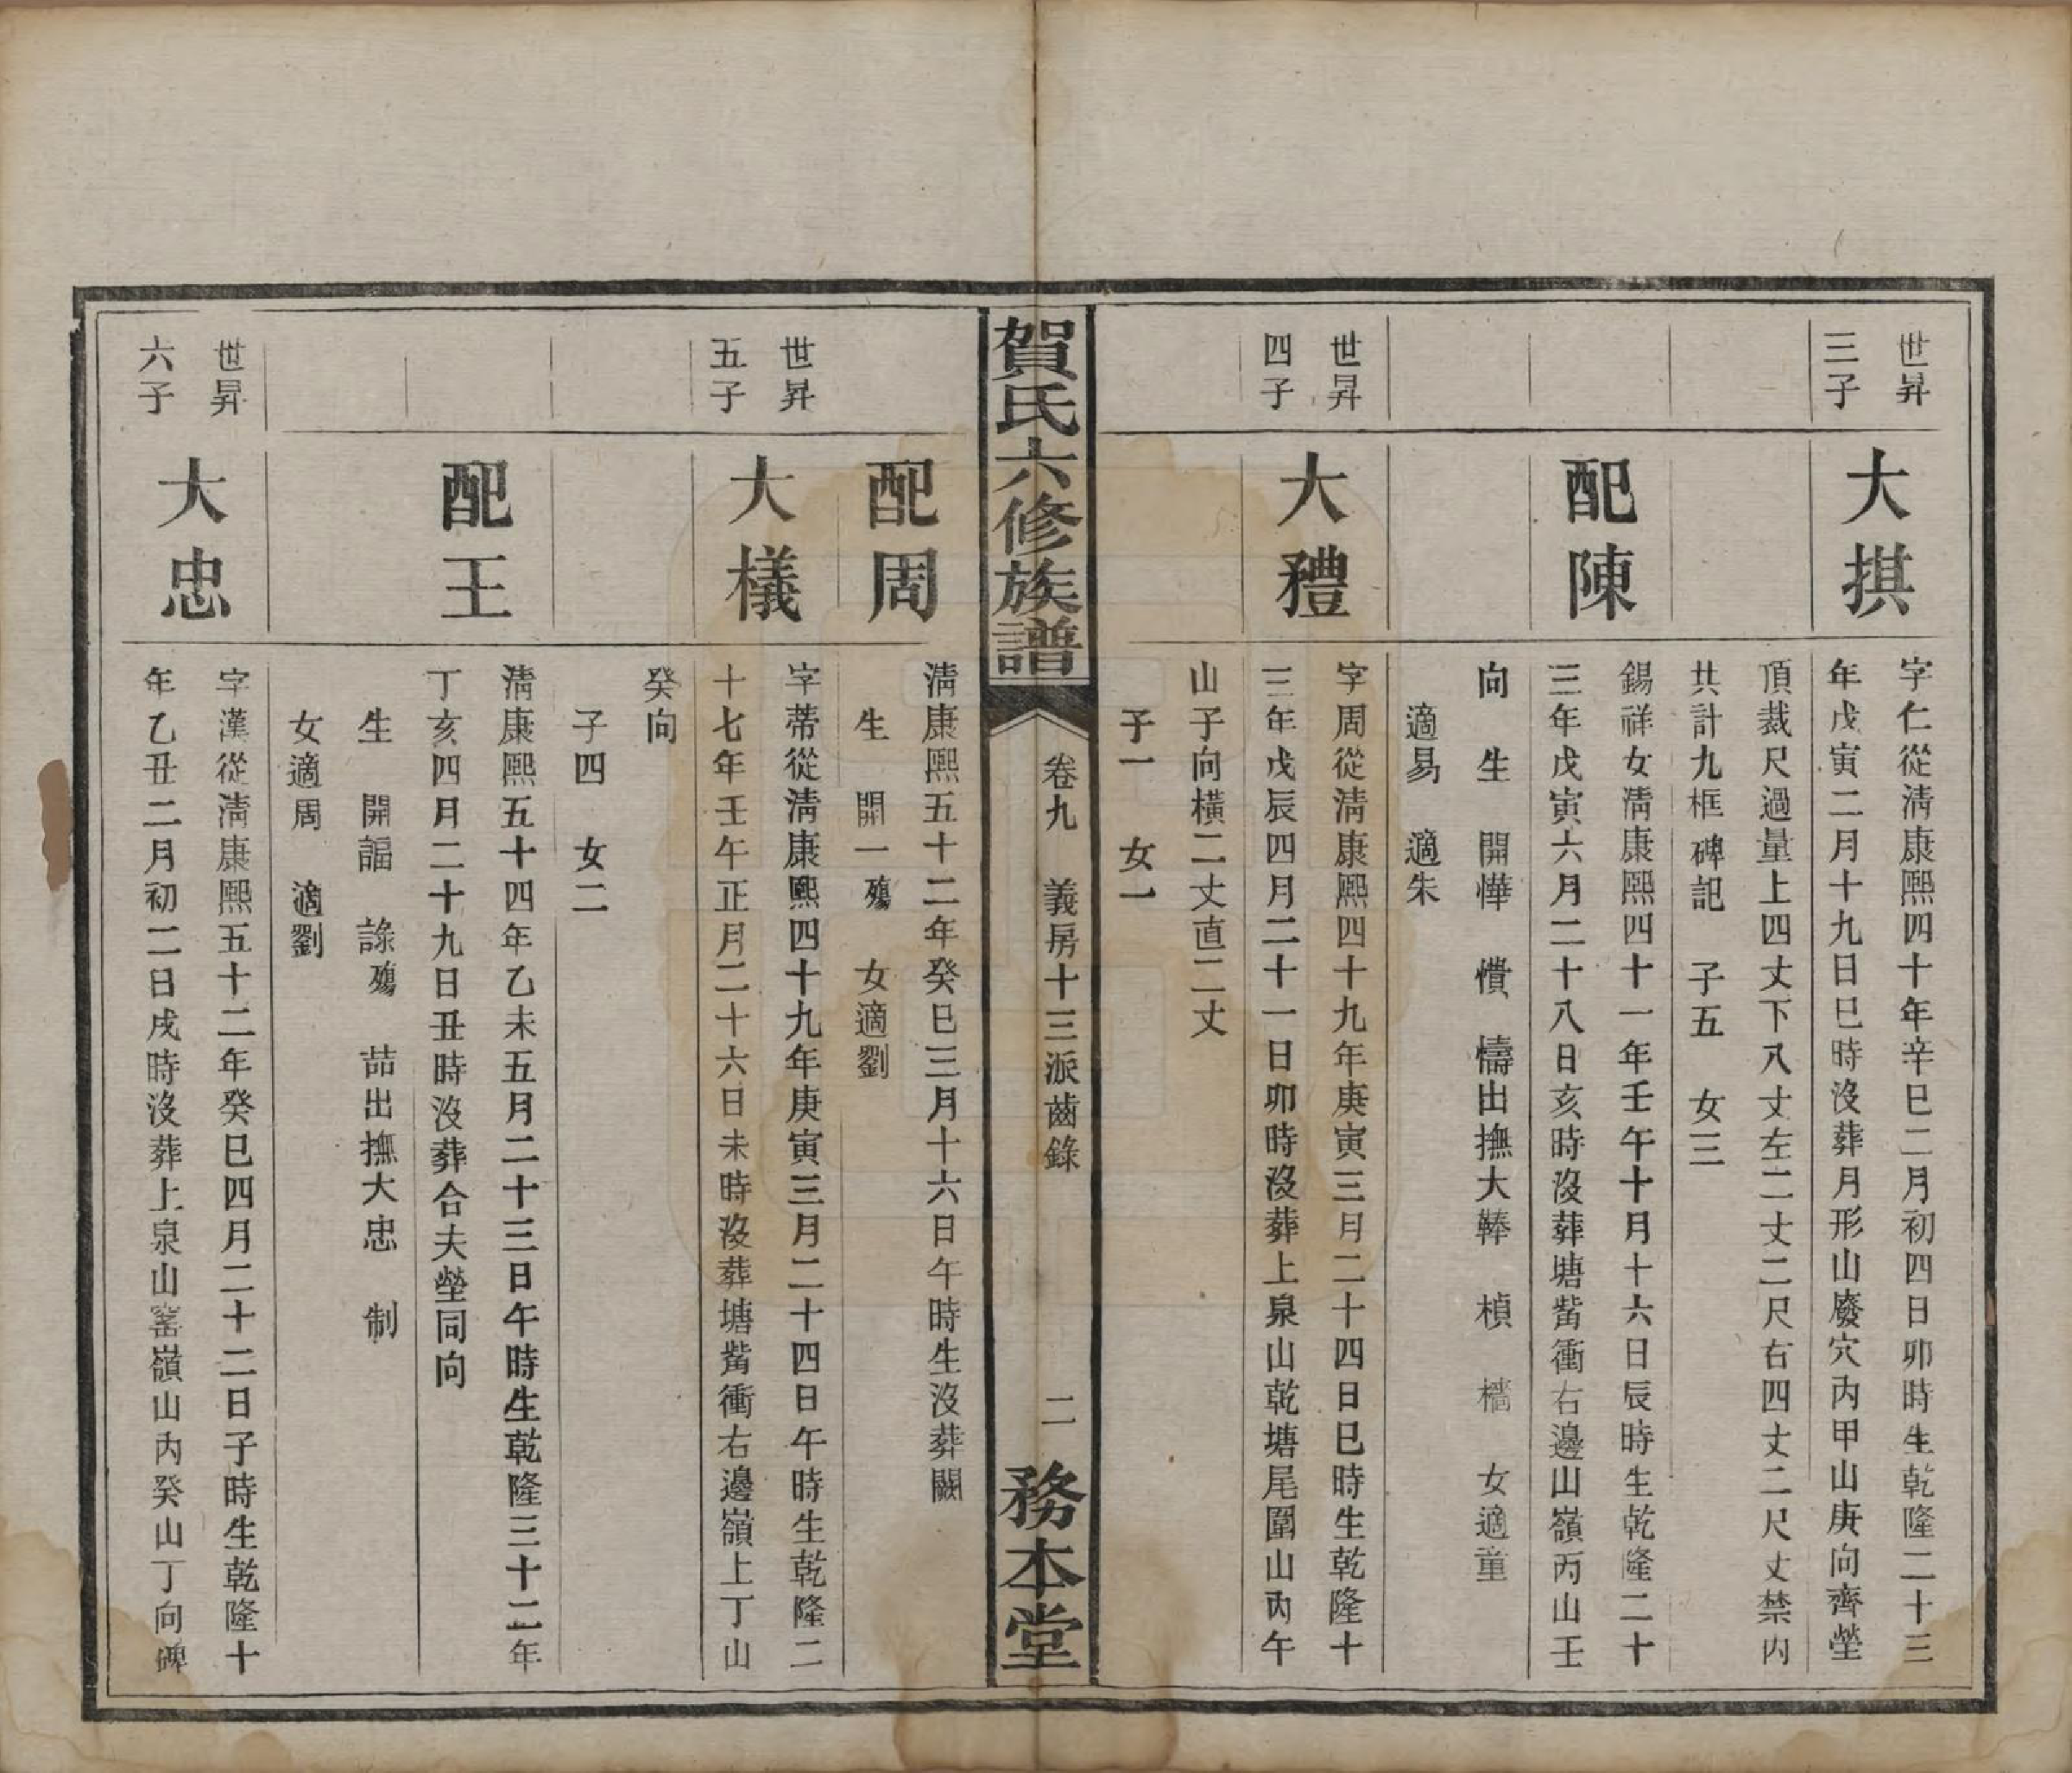 世昇
三子
大掑
字仁從淸康熙四十年辛巳二月初四日卯時生乾隆二十三
年戊寅二月十九日巳時沒葬月形山廢穴內甲山庚向齊塋
頂裁尺過量上四丈下八丈左二丈二尺右四丈二尺丈禁內
共計九框碑記　子五　女三
配陳
錫祥女淸康熙四十一年壬午十月十六日辰時生乾隆二十
三年戊寅六月二十八日亥時沒葬塘觜衝右邊山嶺丙山壬
向　生　開㦊　憒　懤出撫大𩋾　楨　檣　女適童
適易　適朱
世昇
四子
大禮
字周從淸康熙四十九年庚寅三月二十四日巳時生乾隆十
三年戊辰四月二十一日卯時沒葬上泉山乾塘尾圍山內午
山子向橫二丈直二丈
子一　女一
賀氏六修族譜
卷九　義房十三派齒錄　二
務本堂
配周
淸康熙五十二年癸巳三月十六日午時生沒葬闕
生　開一殤　女適劉
世昇
五子
大檥
字蒂從淸康熙四十九年庚寅三月二十四日午時生乾隆二
十七年壬午正月二十六日未時沒葬塘觜衝右邊嶺上丁山
癸向
子四　女二
配王
淸康熙五十四年乙未五月二十三日午時生乾隆三十二年
丁亥四月二十九日丑時沒葬合夫塋同向
生　開諨　諑殤　詰出撫大忠　制
女適周　適劉
世昇
六子
大忠
字漢從淸康熙五十二年癸巳四月二十二日子時生乾隆十
年乙丑二月初二日戌時沒葬上泉山窰嶺山內癸山丁向碑